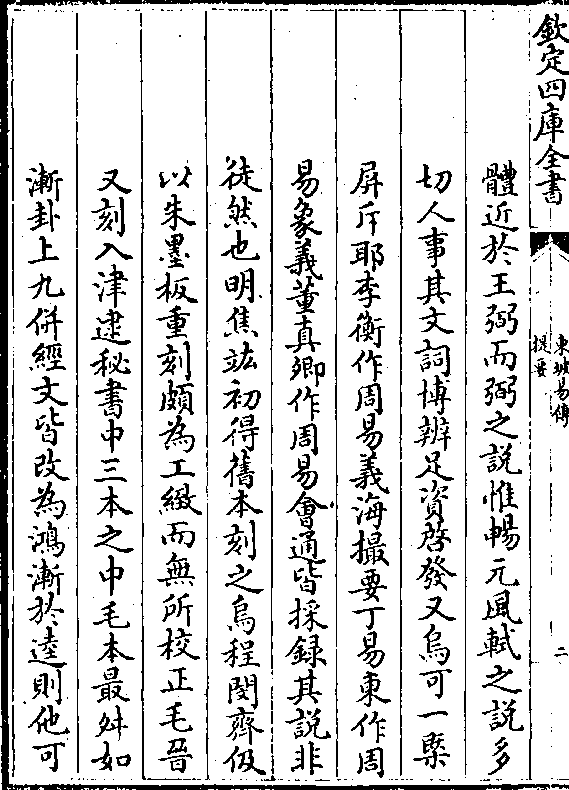 欽定四庫全書
東坡易傳
提要
二
體近於王弼而弼之說惟暢元風軾之說多
切人事其文詞博辨足資啓發又烏可一槩
屏斥耶李衡作周易義海撮要丁易東作周
易象義董真卿作周易會通皆採録其說非
徒然也明焦竑初得舊本刻之烏程閔齊伋
以朱墨板重刻頗為工緻而無所校正毛晉
又刻入津逮秘書中三本之中毛本最舛如
漸卦上九併經文皆改為鴻漸於逵則他可